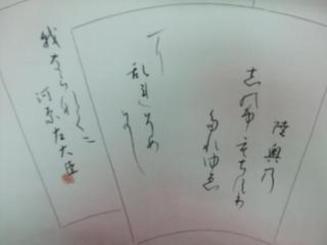 陸奥乃
志の布もちすり
多れゆゑ
に
乱れそめ
にし
我ならなくに
河原左大臣